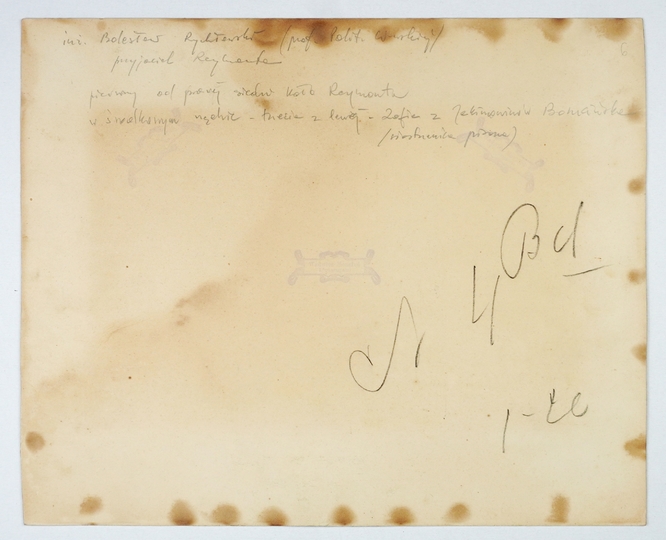 inż. Bolesław Rychłowski (prof. Polit. Warszaw.)
przyjaciel Reymonta
pierwszy od prawej siedzi koło Reymonta
w środkowym rzędzie - trzecia z lewej - Zofia z Jakimowiczów
(siostrzenica pisarza)
6
Bd
4
1-20